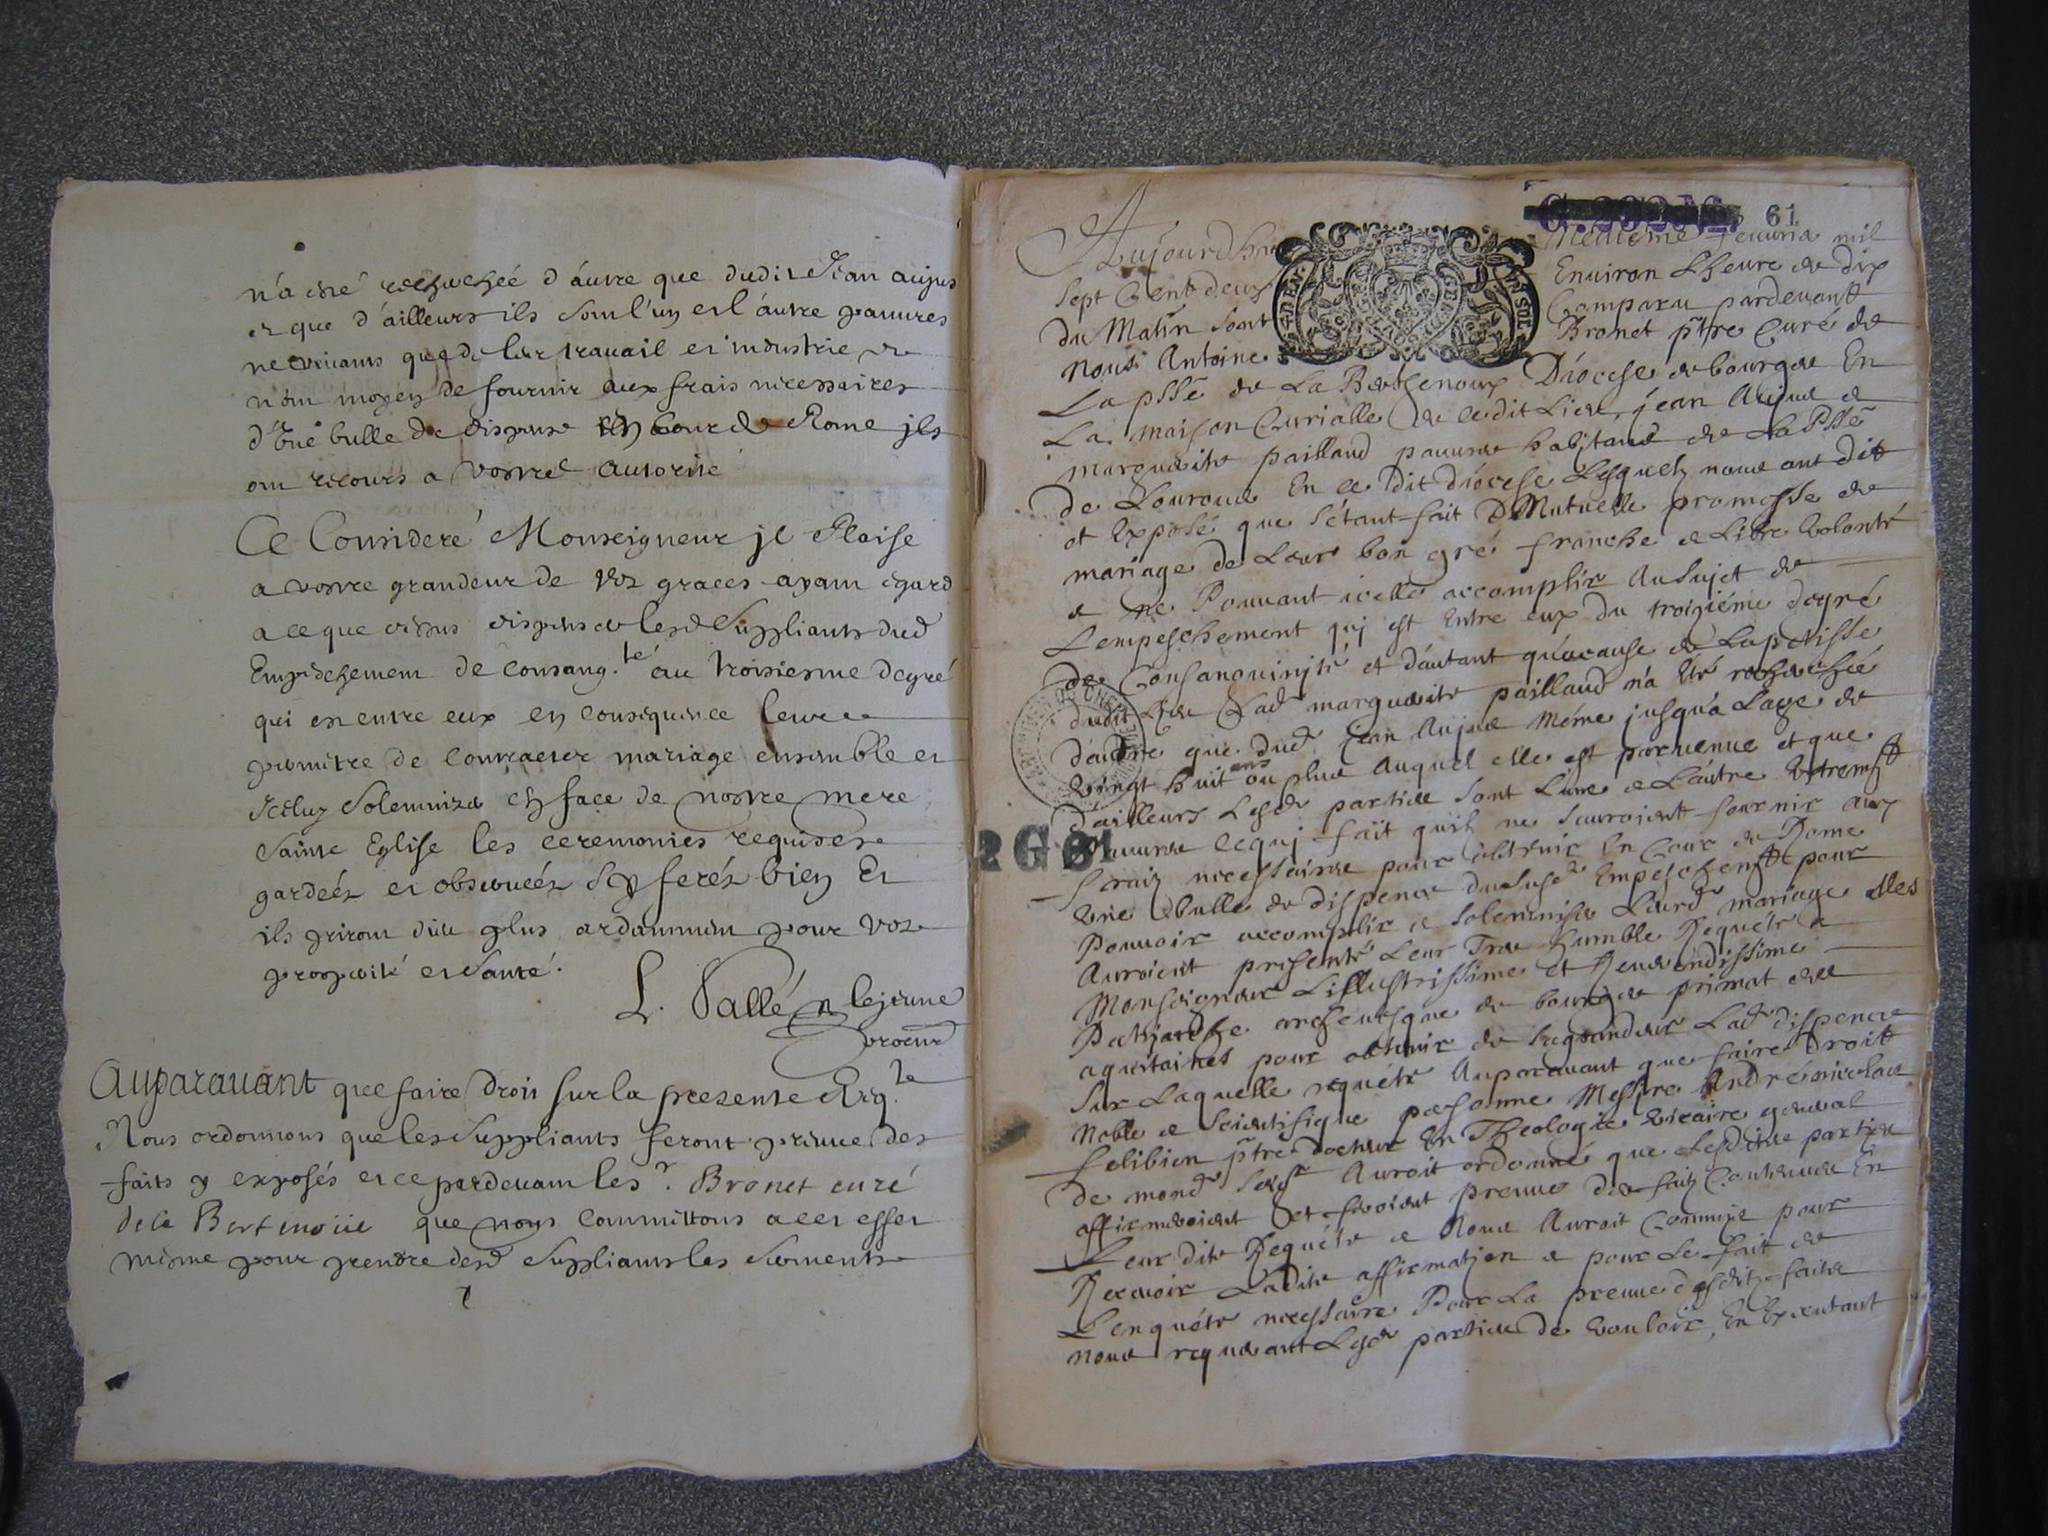 n'a esté recherchéé d'autre que dudit Jean aujus
et que d'ailleurs ils sont l'un et l'autre pauvres
ne vivants que de leur travail et industrie et
n'ont moyen de fournir aux frais necessaires
d'une bulle de dispense en cour de Rome ils
ont recours a vostre autorité
Ce Consideré Monseigneur il Plaise
a vostre grandeur de vos graces ayant egard
a ce que dessus dispenser lesd Suppliants dud
Empechement de consang.té au troisiesme degré
qui est entre eux en consequence leur
permetre de contracter mariage ensemble et
Iceluy Solemnizer en face de nostre mere
Sainte Eglise les ceremonies requises
gardéés et observéés Et ferés bien Et
ils priront dieu plus ardamment pour vos
prosperité et santé.
L. Vallén lejeune
procur
Auparavant que faire droit sur la presente Req.te
Nous ordonnons que les Suppliants feront preuve des
faits y exposés et ce pardevant le sr. Bronet curé
de la Bertenoüe que nous committons a cet effet
mesme pour prendre desd Suppliants les serments
61
Aujourdhuy fevrier mil
Sept Cent deux Environ Lheure de dix
du Matin sont Comparu pardevant
Nous Antoine Bronet ptre Curé de
La psse de La Berthenoux Diocese de bourges En
La maison Curialle de ce dit Lieu, Jean Aujus et
marguerite paillaud pauvres habitans de La Psse
de Lourouer En ce dit diocese Lesquels nous ont dit
et Exposé que s'etant fait D Mutuelle promesse de
mariage de Leur bon gré franche et Libre Volonté
et ne Pouvant icelle accomplir Au sujet de
Lempeschement qui est Entre eux du troiziéme degré
de Consanguinité et d'autant qu'acause de La petitesse
dudit Lieu Lad marguerite paillaud n'a Eté recherchéé
d'autre que dud Jean Aujus Méme jusqu'a Lage de
Vingt huit ans ou plus Auquel elle est parvenue et que
d'ailleurs Lesd parties sont L'une et L'autre Extremt
pauvres ce qui fait qu'ils ne scauroient fournir aux
2G 61
fraix necessaires pour obtenir En Cour de Rome
Une bulle de dispence dudusd Empeschemt pour
Pouvoir accomplir et solemniser Leurd mariage Elles
Auroient presenté Leur Tres humble Requéte a
Monseigneur Lillustrissime et Reverendissime
Patriarche archevesque de bourges primat des
aquitaines pour obtenir de sa grandeur Lad dispence
Sur Laquelle requéte Auparavant que faire droitt
Noble et scientifique personne Messire André nicolas
felibien ptre docteur En Theologie vicaire general
de mond seigr Auroit ordonné que Lesdites parties
affirmeroient et feroient preuve des faits Contenus En
Leur dite Requéte et Nous Auroit Commis pour
Recevoir Ladite affirmation et pour Le fait de
Lenquéte necessaire Pour La preuve desdits faits
nous requerant Lesd parties de vouloir, En Executant